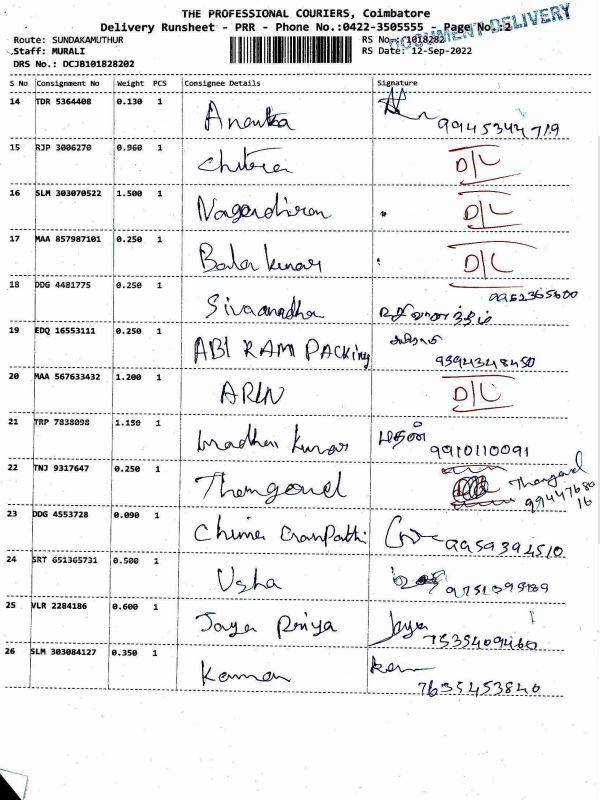 THE PROFESSIONAL COURIERS, Coimbatore
Delivery Runsheet - PRR - Phone No.:0422-3505555 - Page No.:2
DOCUMENT DELIVERY
Route: SUNDAKAMUTHUR RS No.: 1018282
Staff: MURALI RS Date: 12-Sep-2022
DRS No.: DCJB101828202
S No Consignment No Weight PCS Consignee Details Signature
14 TDR 5364408 0.130 1 Ananta 9945344719
15 RJP 3006270 0.960 1 Chitra D/L
16 SLM 303070522 1.500 1 Nagendiran D/L
17 MAA 857987101 0.250 1 Bala kumar D/L
18 DDG 4481775 0.250 1 Sivaanadha 9952365600
19 EDQ 16553111 0.250 1 ABI RAM PACKing 9394348450
20 MAA 567633432 1.200 1 ARUN D/L
21 TRP 7838098 1.150 1 madhan kumar மதன் 9910110091
22 TNJ 9317647 0.250 1 Thangavel Thangavel 9944768016
23 DDG 4553728 0.090 1 9959394510
24 SRT 651365731 0.500 1 Usha
25 VLR 2284186 0.600 1 Jaya Priya Jaya 7535409460
26 SLM 303084127 0.350 1 Kannan 7635453840